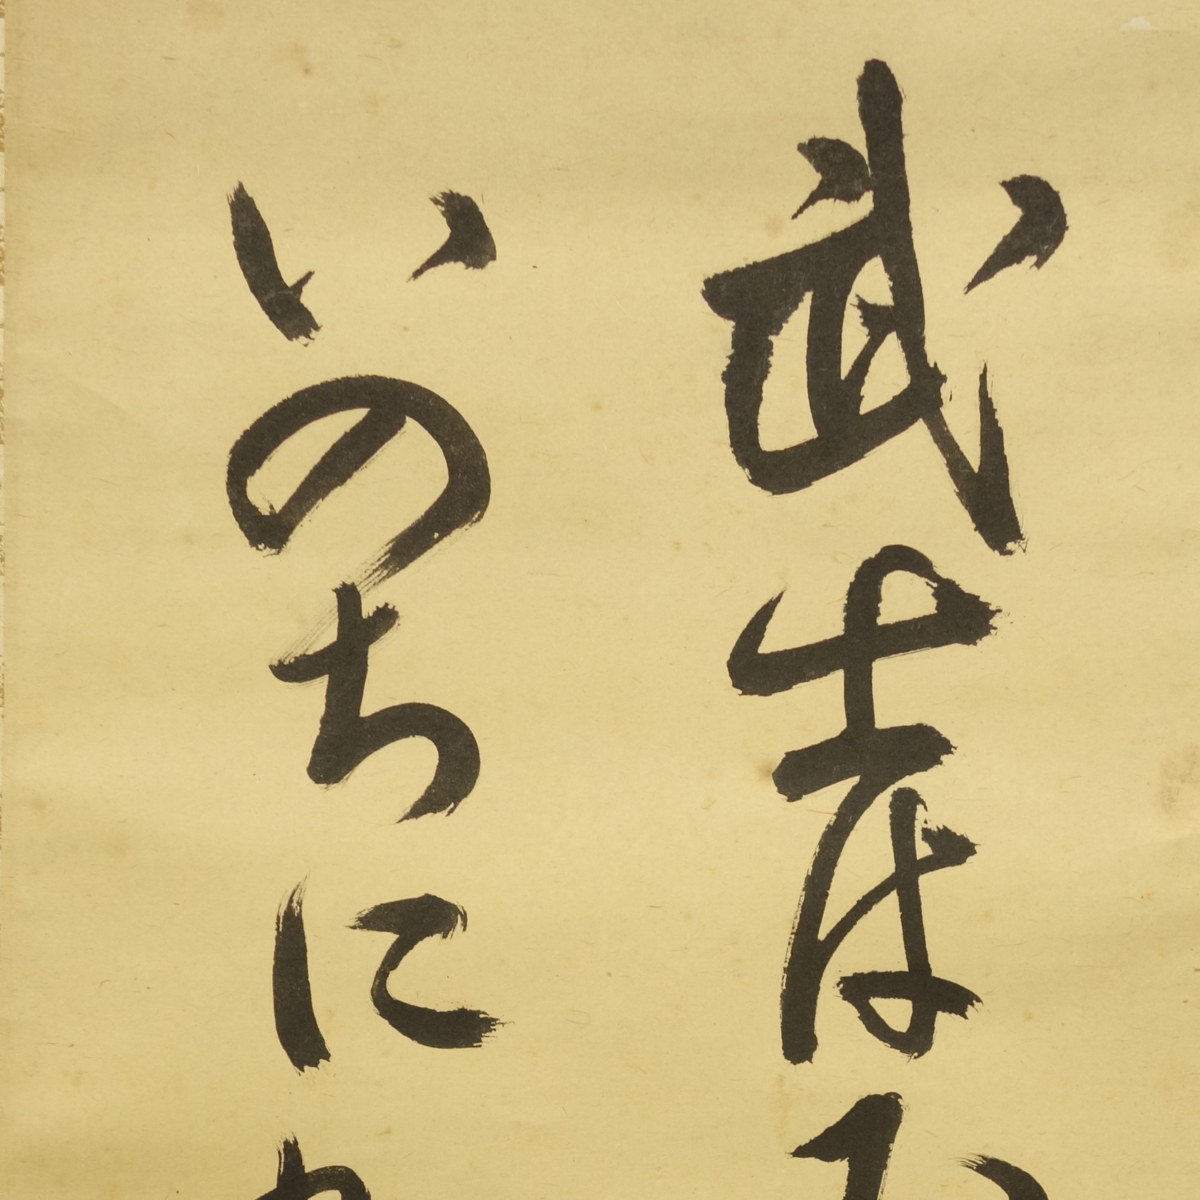 武士は
いのちに